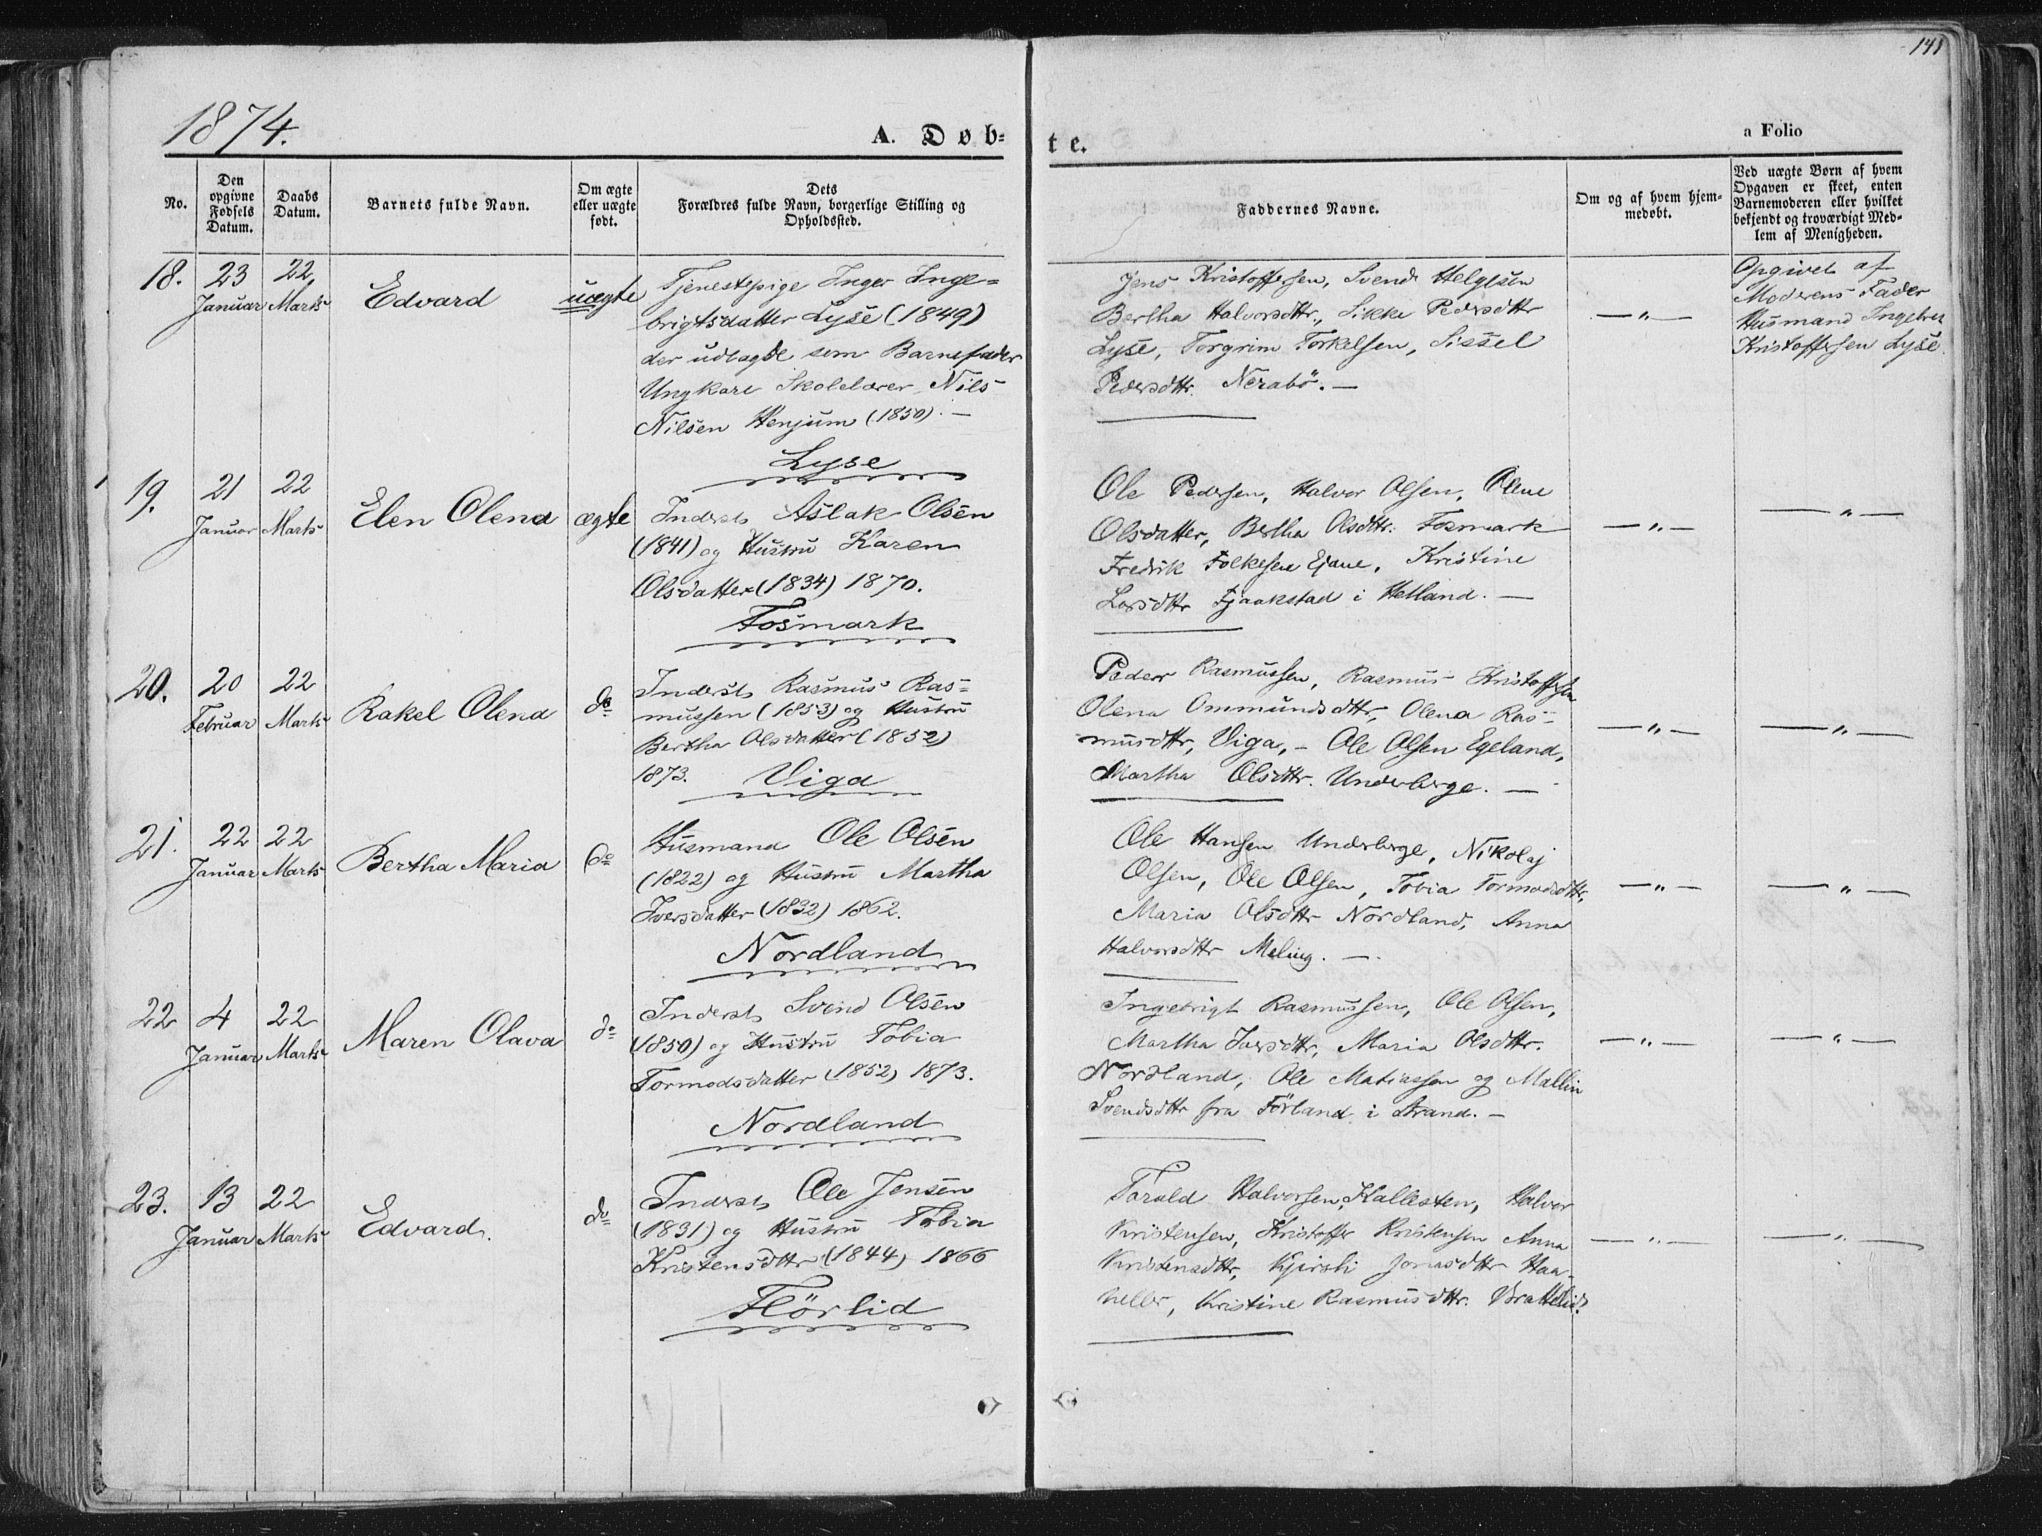 141
1874.
A. Døb-
te.
a Folio
No.
Den opgivne Fødsels Datum.
Daabs Datum.
Barnets fulde Navn.
Om ægte eller uægte født.
Dets Forældres fulde Navn, borgerlige Stilling og Opholdssted.
Faddernes Navne.
Om og af hvem hjemmedøbt.
Ved uægte Børn af hvem Opgaven er skeet, enten Barnemoderen eller hvilket bekjendt og troværdigt Medlem af Menigheden.
18.
23 Januar
22 Marts
Edvard
uægte
Tjenestepige Inger Inge=
brigtsdatter Lyse (1849)
der udlagde som Barnefader
Ungkarl Skolelærer Nils
Nilsen Henjum (1850). —
Lyse
Jens Kristoffersen, Svend Helgesen
Bertha Halvorsdttr., Sikke Pedersdttr
Lyse, Torgrim Torkelsen, Sissel
Pedersdttr. Nerabö. —
— " —
Opgivet af
Moderens Fader
Husmand Ingebret
Kristoffersen Lyse.
19.
21 Januar
22 Marts
Elen Olena
ægte
Inderst Aslak Olsen
(1841) og Hustru Karen
Olsdatter (1834) 1870.
Fosmark
Ole Pedersen, Halvor Olsen, Olene
Olsdatter, Bertha Olsdttr. Fosmark
Fredrik Folkesen Eiane, Kristine
Larsdttr Fjaakstad i Helland. —
— " —
— " —
20.
20 Februar
22 Marts
Rakel Olena
do
Inderst Rasmus Ras=
mussen (1853) og Hustru
Bertha Olsdatter (1852)
1873.
Viga
Peder Rasmussen, Rasmus Kristoffersen
Olena Ommundsdttr, Olena Ras-
musdttr, Viga, — Ole Olsen Egeland,
Martha Olsdttr. Underberge. —
— " —
— " —
21.
22 Januar
22 Marts
Bertha Maria
do
Husmand Ole Olsen
(1822) og Hustru Martha
Iversdatter (1832) 1862.
Nordland
Ole Hansen Underberge, Nikolaj
Olsen, Ole Olsen, Tobia Tormodsdttr,
Maria Olsdttr Nordland, Anna
Halvorsdttr Meling. —
— " —
— " —
22
4 Januar
22 Marts
Maren Olava
do
Inderst Svend Olsen
(1850) og Hustru Tobia
Tormodsdatter (1852) 1873.
Nordland
Ingebrigt Rasmussen, Ole Olsen,
Martha Iversdttr, Maria Olsdttr.
Nordland, Ole Matiassen og Mallin
Svendsdttr fra Förland i Strand. —
— " —
— " —
23.
13 Januar
22 Marts
Edvard.
do
Inderst Ole Jensen
(1831) og Hustru Tobia
Kristensdttr (1844) 1866
Flörlid
Torald Halvorsen, Kallesten, Halvor
Kristensen, Kristoffer Kristensen Anna
Kristensdttr, Kjirsti Jonasdttr Haa-
heller, Kristine Rasmusdttr. Brattelid.
— " —
— " —